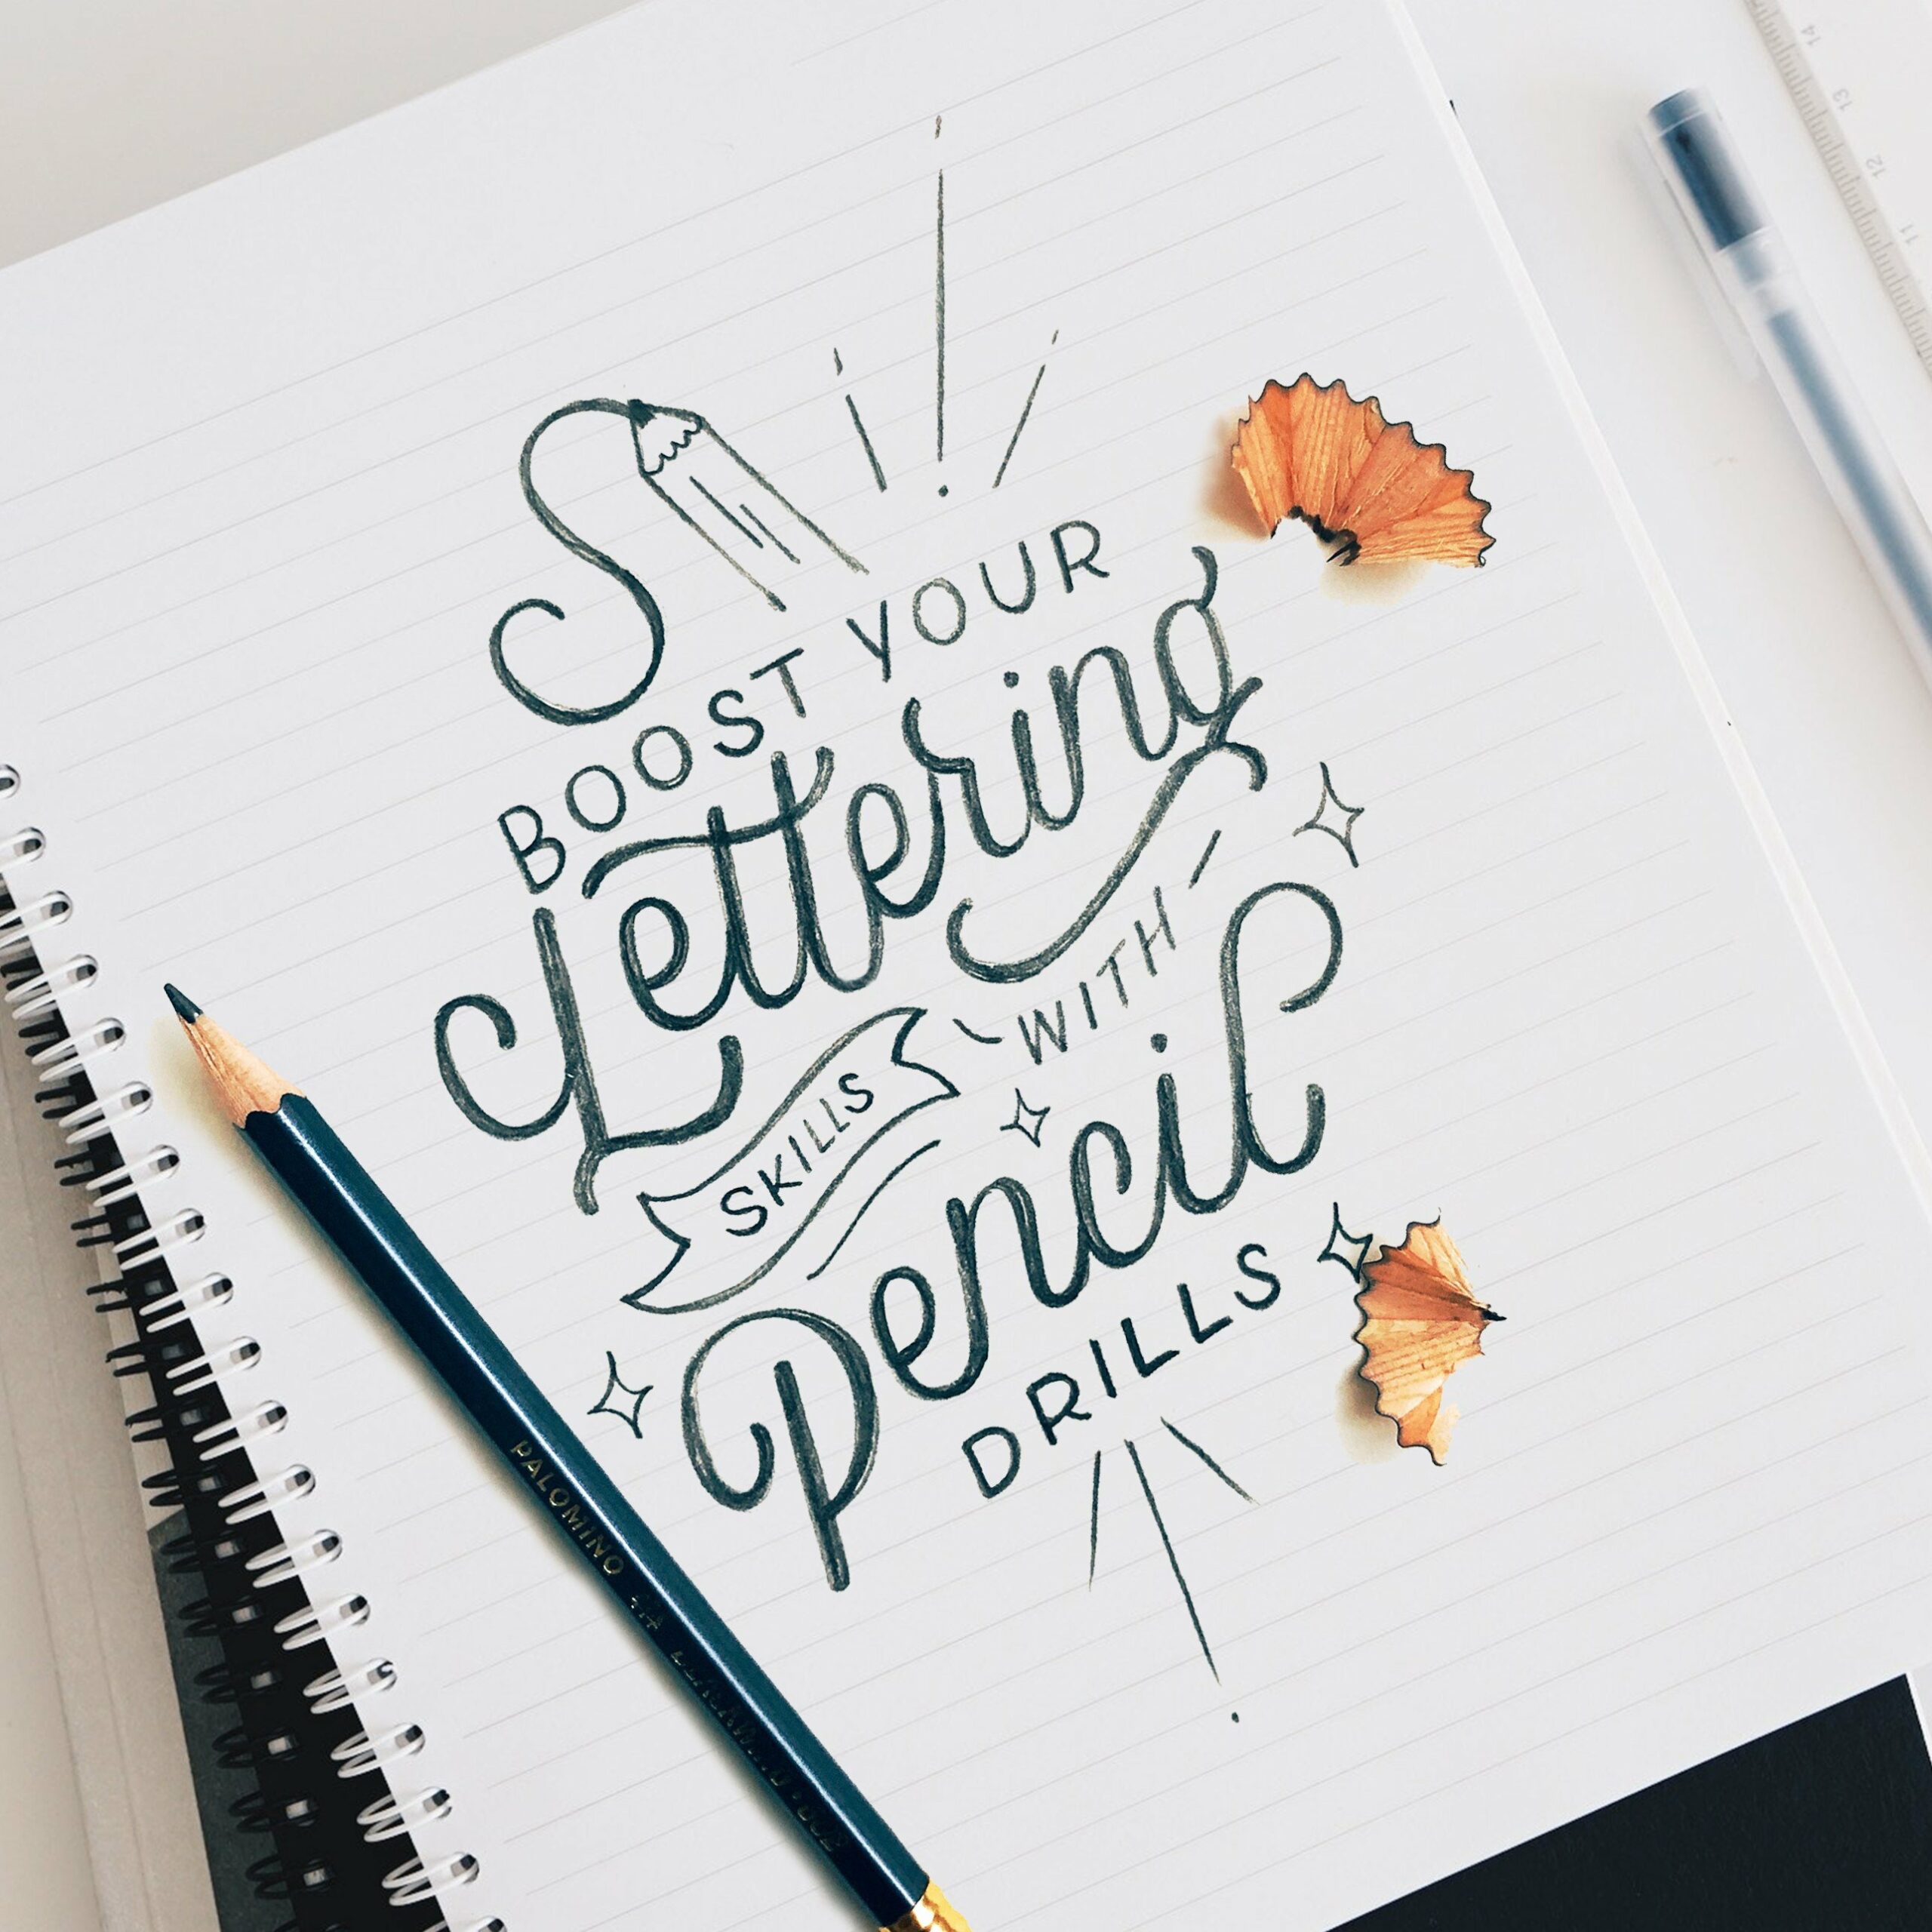 BOOST YOUR
Lettering
SKILLS
WITH
Pencil
DRILLS
PALOMINO
14
13
12
11